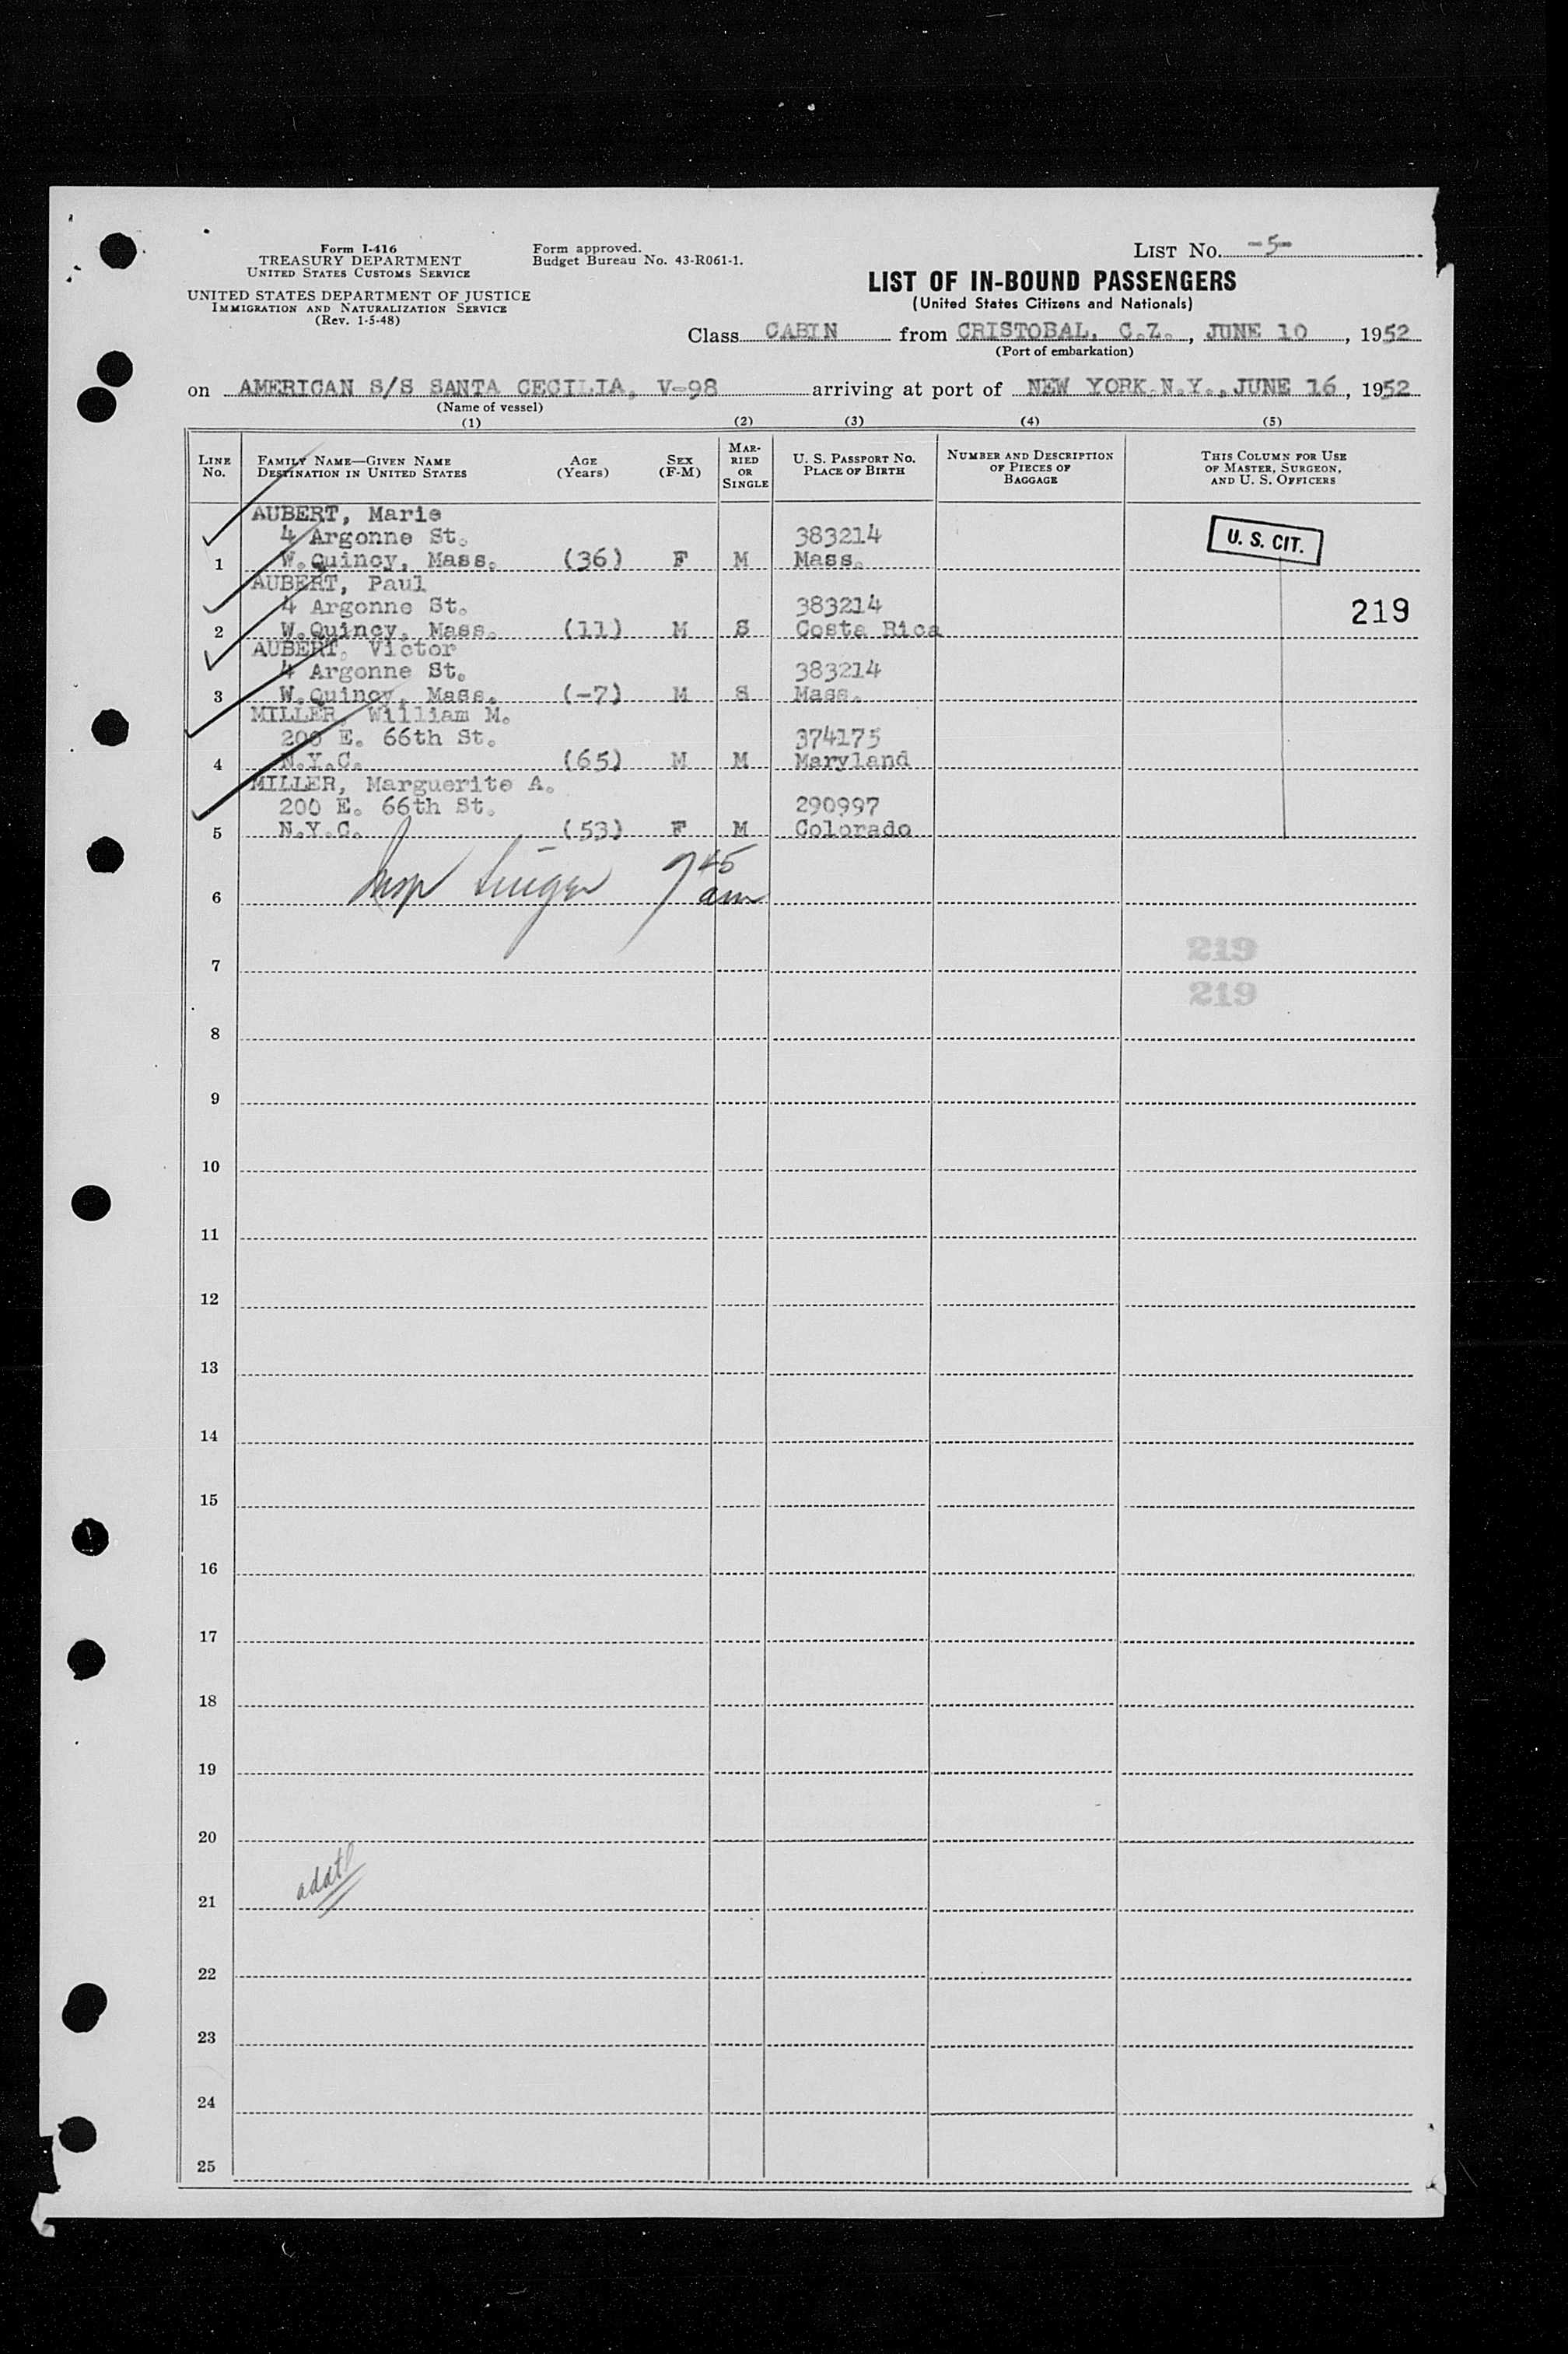 Form I-416
TREASURY DEPARTMENT
UNITED STATES CUSTOMS SERVICE
UNITED STATES DEPARTMENT OF JUSTICE
IMMIGRATION AND NATURALIZATION SERVICE
(Rev. 1-5-48)
Form approved.
Budget Bureau No. 43-R061-1.
LIST No. -5-
LIST OF IN-BOUND PASSENGERS
(United States Citizens and Nationals)
Class CABIN from CRISTOBAL, C.Z., JUNE 10, 1952
(Port of embarkation)
on AMERICAN S/S SANTA CECILIA, V-98 arriving at port of NEW YORK.N.Y., JUNE 16, 1952
(Name of vessel)
(1) (2) (3) (4) (5)
LINE No. FAMILY NAME—GIVEN NAME DESTINATION IN UNITED STATES AGE (Years) SEX (F-M) MARRIED OR SINGLE U. S. PASSPORT NO. PLACE OF BIRTH NUMBER AND DESCRIPTION OF PIECES OF BAGGAGE THIS COLUMN FOR USE OF MASTER, SURGEON, AND U. S. OFFICERS
AUBERT, Marie
4 Argonne St. 383214 U. S. CIT.
1 W.Quincy, Mass. (36) F M Mass.
AUBERT, Paul
4 Argonne St. 383214 219
2 W.Quincy, Mass. (11) M S Costa Rica
AUBERT, Victor
4 Argonne St. 383214
3 W.Quincy, Mass. (-7) M S Mass.
MILLER, William M.
200 E. 66th St. 374175
4 N.Y.C. (65) M M Maryland
MILLER, Marguerite A.
200 E. 66th St. 290997
5 N.Y.C. (53) F M Colorado
6 Insp 7 45 am
219
7
219
8
9
10
11
12
13
14
15
16
17
18
19
20
21
22
23
24
25